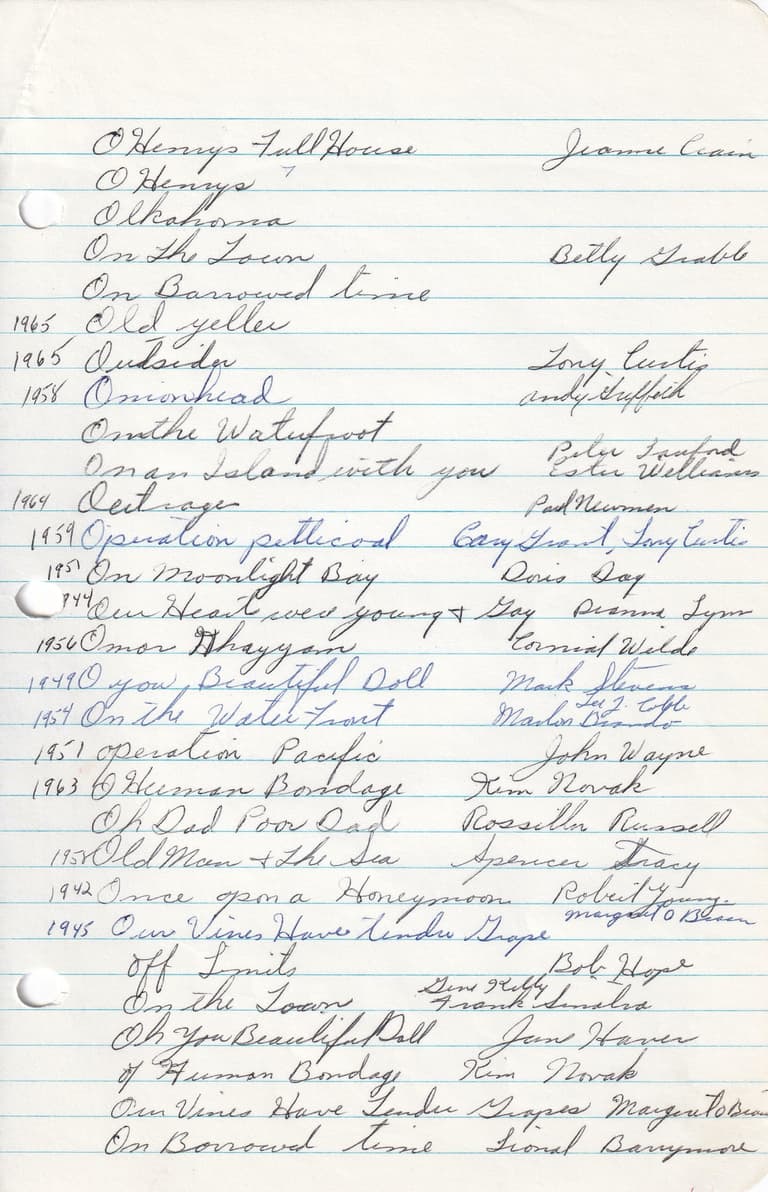 O Henrys Full House Jeanne Crain
O Henrys
Olkahoma
On The Town Betty Grable
On Barrowed time
1965 Old yeller
1965 Outsider Tony Curtis
1958 Onionhead andy Griffeth
On the Waterfront
On an Island with you Peter Lawford
Ester Williams
1964 Outrage Paul Newman
1959 Operation petticoat Cary Grant, Tony Curtis
1951 On Moonlight Bay Doris Day
1944 Our Heart were young & Gay Dianna Lynn
1956 Omar Khayyam Cornial Wilde
1949 O you Beautiful Doll Mark Stevens
1954 On the Water Front Marlon Brando Lee J. Cobb
1951 operation Pacific John Wayne
1963 O Human Bondage Kim Novak
Oh Dad Poor Dad Russell
1958 Old Man & The Sea Spencer Tracy
1942 Once upon a Honeymoon Robert Young
1945 Our Vines Have tender Grape Margaret O Brien
off Limits Bob Hope
On the Town Gene Kelly Frank Sinatra
Oh You Beautiful Doll June Haver
of Human Bondage Kim Novak
Our Vines Have Tender Grapes Margaret O Brien
On Borrowed time Lional Barrymore